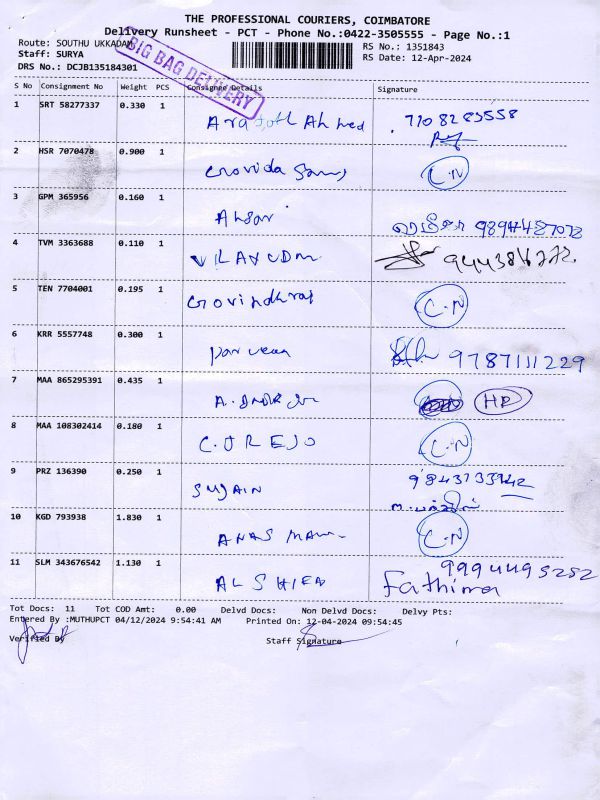 THE PROFESSIONAL COURIERS, COIMBATORE
Delivery Runsheet - PCT - Phone No.:0422-3505555 - Page No.:1
Route: SOUTHU UKKADAM
RS No.: 1351843
Staff: SURYA
RS Date: 12-Apr-2024
DRS No.: DCJB135184301
BIG BAG DELIVERY
S No Consignment No Weight PCS Consignee Details Signature
1 SRT 58277337 0.330 1 Ahmed 7708283558
2 HSR 7070478 0.900 1 Govinda C.N
3 GPM 365956 0.160 1 Ahsar
4 TVM 3363688 0.110 1
5 TEN 7704001 0.195 1 Govindhraj C.N
6 KRR 5557748 0.300 1 parveen 9787111229
7 MAA 865295391 0.435 1 HP
8 MAA 108302414 0.180 1 C.N
9 PRZ 136390 0.250 1 SUJAIN
10 KGD 793938 1.830 1 ANAS C.N
11 SLM 343676542 1.130 1 AL SHIEA 9994495252
Fathima
Tot Docs: 11 Tot COD Amt: 0.00 Delvd Docs: Non Delvd Docs: Delvy Pts:
Entered By :MUTHUPCT 04/12/2024 9:54:41 AM Printed On: 12-04-2024 09:54:45
Verified By Staff Signature